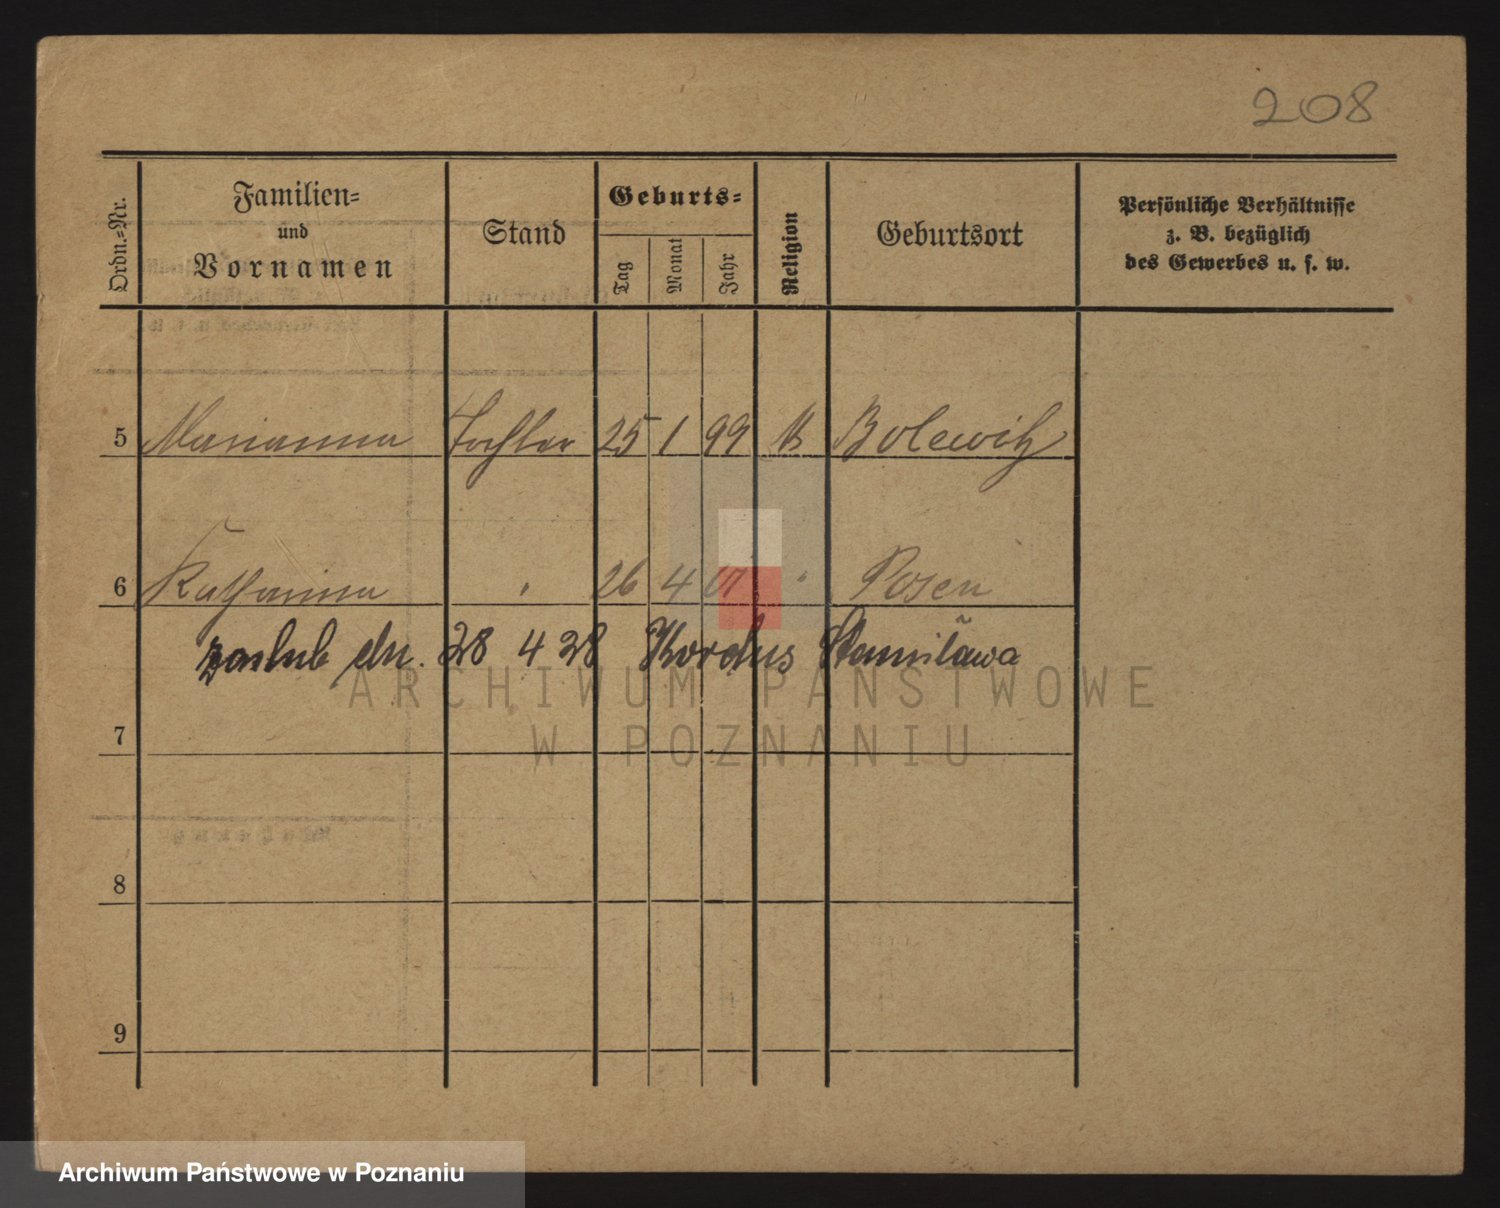 208
Ordn.=Nr.
Familien=
und
Vornamen
Stand
Geburts=
Tag
Monat
Jahr
Religion
Geburtsort
Persönliche Verhältnisse
z. B. bezüglich
des Gewerbes u. s. w.
5 Marianna Tochter 25 1 99 Bolewitz
6 Katharina " 26 4 01 " Posen
zaślub dn. 28 4 28 Kordus Stanisława
ARCHIWUM PAŃSTWOWE
W POZNANIU
7
8
9
Archiwum Państwowe w Poznaniu